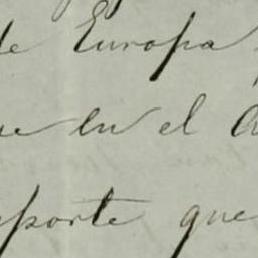 de Europa
ue en el
porte que